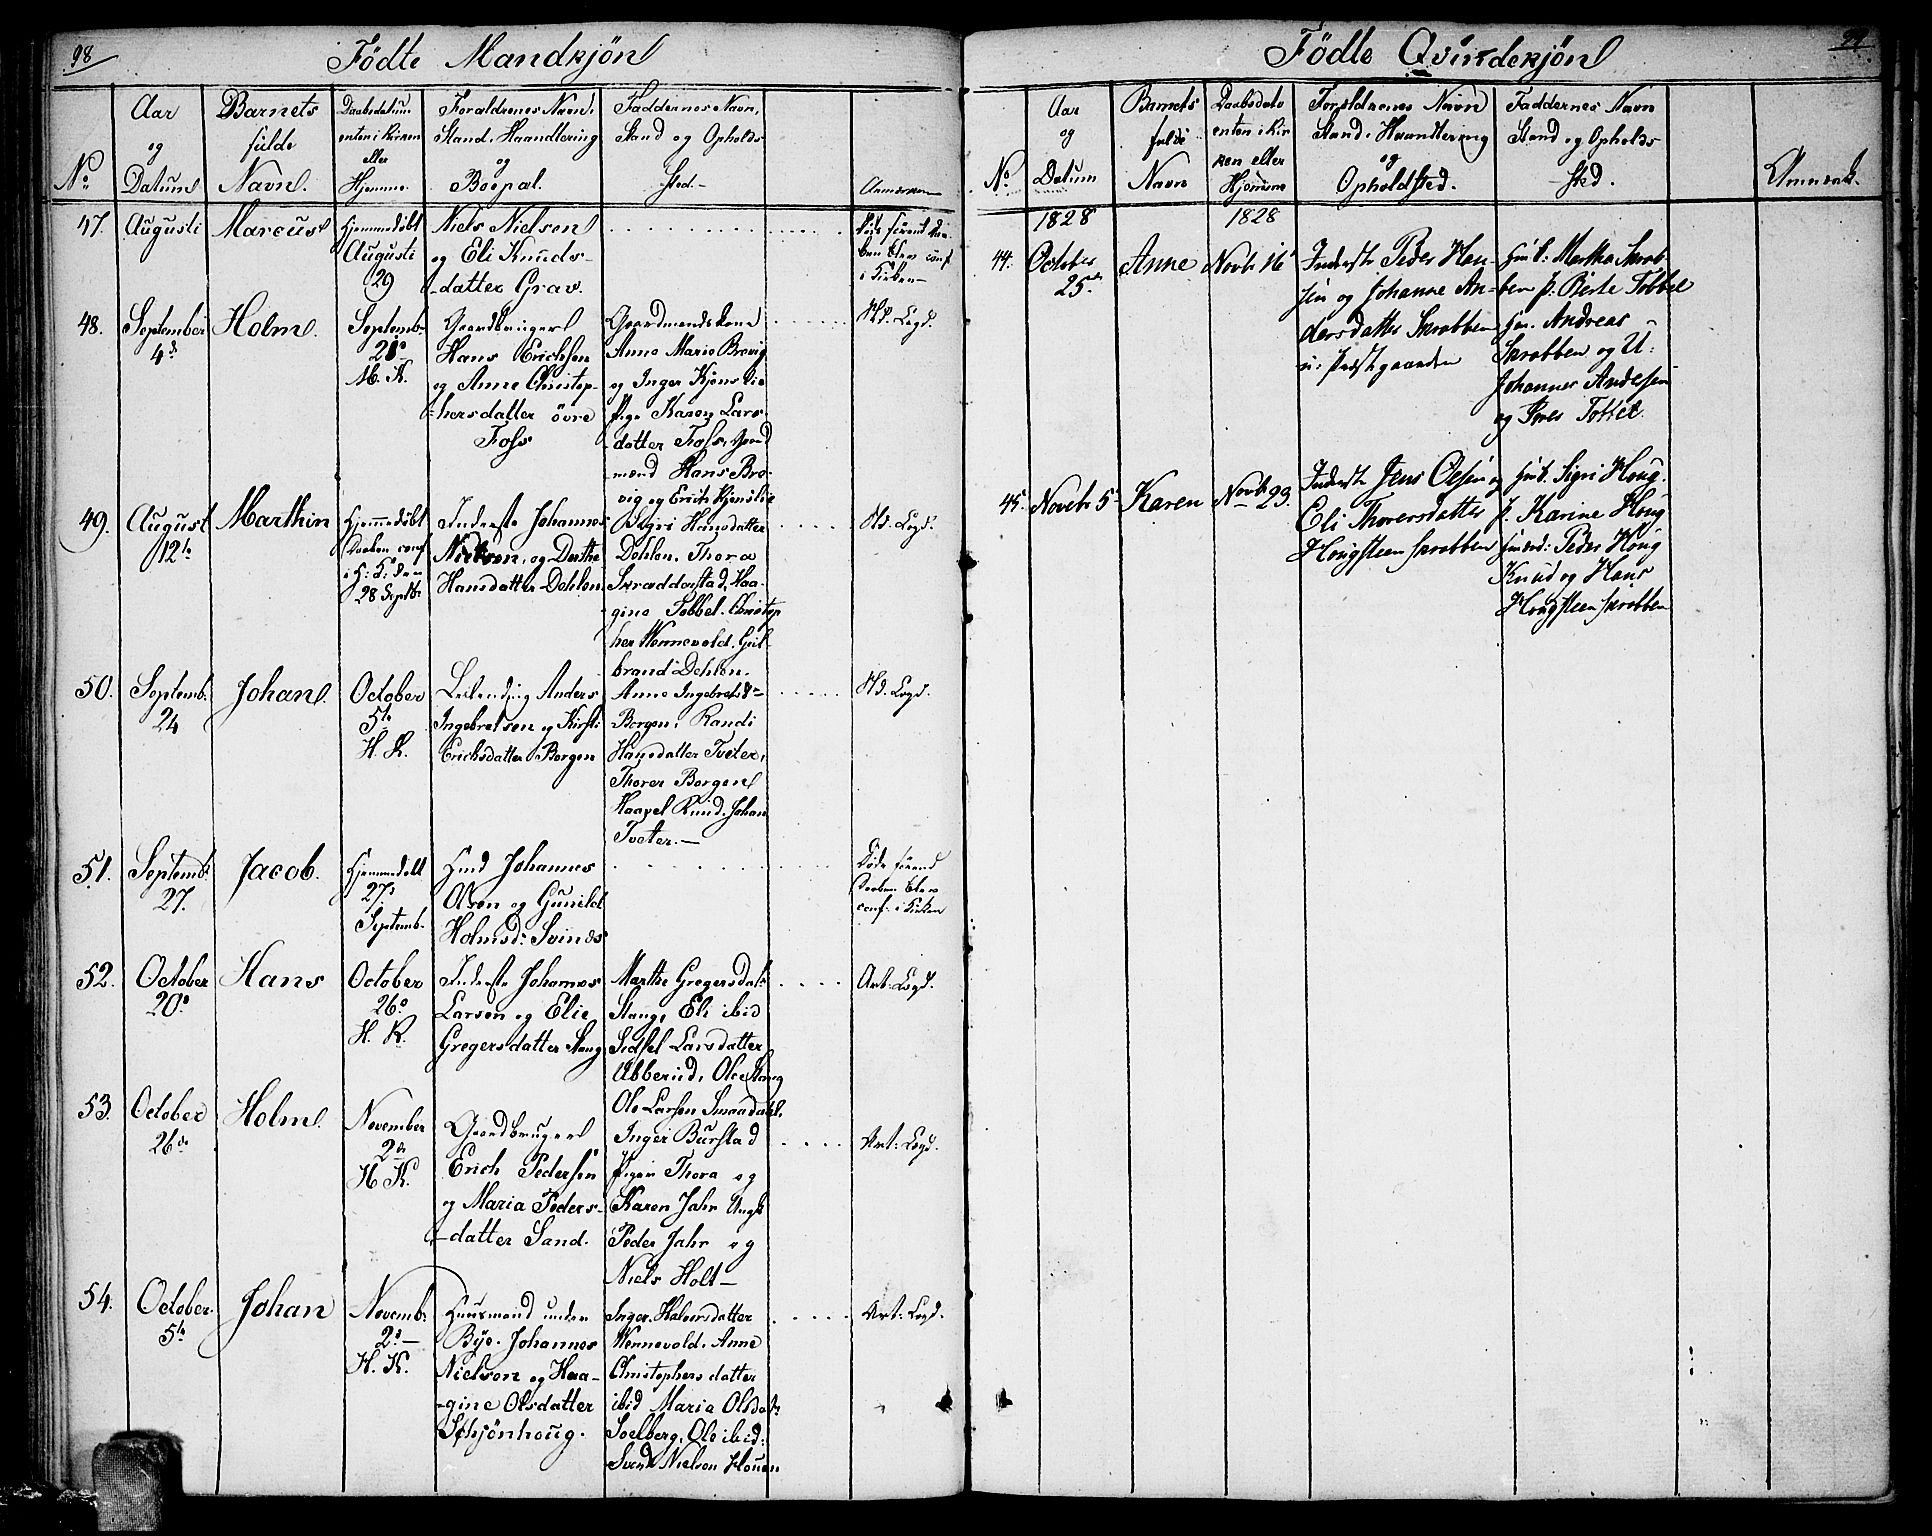 98
Födte Mandkjön
No
Aar
og
Datum
Barnets
fulde
Navn.
Daabsdatum
enten i Kirken
eller
Hjemme
Foraldrenes Navn,
Stand, Haandtering
og
Boepæl.
Faddernes Navn,
Stand og Opholds
Sted.
47. Augusti Marcus Hjemmedöbt
Augusti
29
Niels Nielsen
og Eli Knuds-
-datter Grav.
Döde förend Daa-
ben blev conf
i Kirken
48. September
4de
Holm.
Septemb.
21
M. K.
Gaardbruger
Hans Erichsen
og Anne Christop-
-hersdatter övre
Foss
Gaardmandskone
Anne Marie Brovig
og Inger Kjens lie
Pige Karen Lars-
datter Foss, Gaard
mænd Hans Bro-
vig og Erich Kjenslie
Nd. Lægd.
49. August
12te
Marthin
Hjemmedöbt
Daaben conf
i H: K: den
28 Septb.
Inderste Johannes
Nielsen, og Dorthe
Hansdatter Dehlen.
Sigri Hansdatter
Dehlen. Thora
Skræddarstad, Haa-
gine Tobbel. Christop
her Wennevold. Gul-
brand Dehlen.
Nd. Lægd.
50. Septemb.
24
Johan.
October
5te
H. K.
Leilending Anders
Ingebretsen og Kirsti
Erichsdatter Borgen
Anne Ingebretsd
Borgen, Randi
Hansdatter Tveter,
Thorer Borgen
Haavel Ruud. Johan
Tveter.
Nd. Lægd.
51. Septemb.
27.
Jacob.
Hjemmedöbt
27
Septemb.
Huusd Johannes
Olsen og Gunild
Holmsd: Svinds
Döde förend
Daaben blev
conf: i Kirken
52. October
20
Hans
October
26
H. K.
Inderste Johannes
Larsen og Elie
Gregersdatter Stang
Marthe Gregersdat:
Stang, Eli ibid
Sidsel Larsdatter
Abberud, Ole Stang
Ole Larsen Smaadahl.
Art: Lægd.
53. October
26de
Holm.
November
2de
H K.
Gaardbruger
Erich Pedersen
og Maria Peders-
-datter Sand.
Inger Burstad
Pigen Thora og
Karen Jahr Ungk
Peder Jahr og
Niels Holt
Art: Lægd.
54. October
5te
Johan
Novemb.
2
H. K.
Huusmand under
Bye. Johannes
Nielsen og Haa-
-gine Olsdatter
Schjönhoug.
Inger Halvorsdatter
Wennevold. Anne
Christophersdatter
ibid Maria Olsdat:
Soelberg, Ole ibid:
Svend Nielsen Houen
Art: Lægd.
Födte Qvindekjön
99
No
Aar
og
Datum
Barnets
fulde
Navn
Daabsdato
enten i Kir
ken eller
Hjemme
Forældrenes Navn
Stand, Haandtering
og
Opholdsted.
Faddernes Navn
Stand og Opholds
Sted.
Anmærk.
1828 1828
44. October
25de
Anne Novb. 16
Inderste Peder Han-
sen og Johanne An-
dersdatter Skrobben
u: Præstegaarden
Hub: Martha Skrob-
ben p: Berte Tobbel
Hm. Andreas
Skrobben og U:
Johannes Andersen
og Tollef
45. Novebr 5 Karen Novbr 23.
Inderste Jens Olsen og
Eli Thorersdatter
Hougsteen Skrobben
Hub. Sigri Houg.
p. Karine Houg
Hmænd: Peder Houg
Knud og Hans
Hougsteen Skrobben